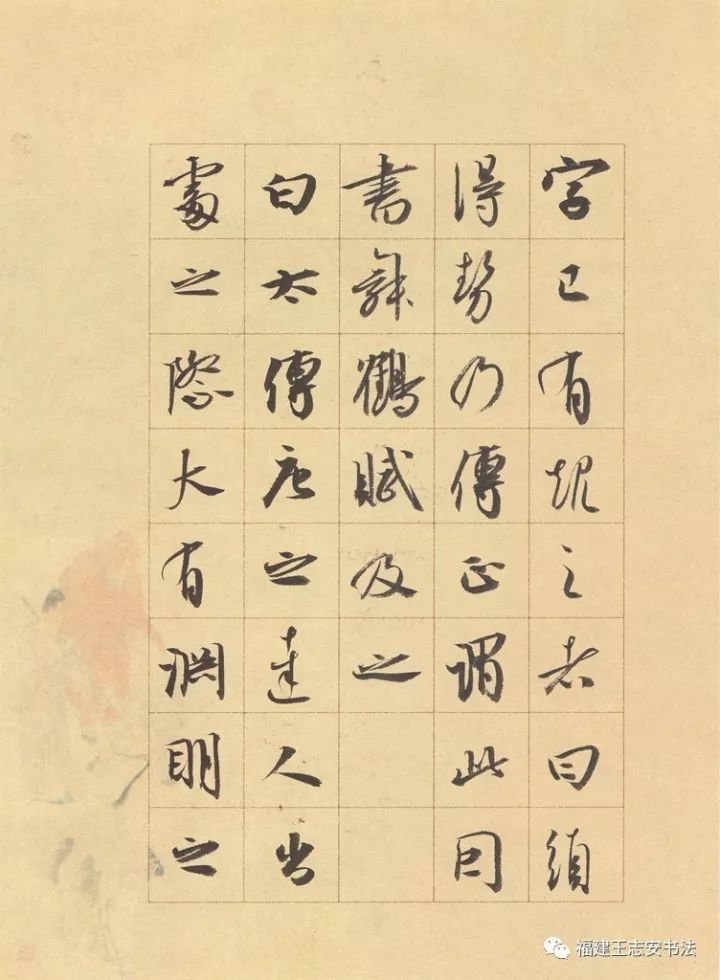 字已有規之者曰須
得勢乃傳正謂此因
書舞鶴賦及之
白太傅唐之達人出
處之際大有淵明之
福建王志安书法